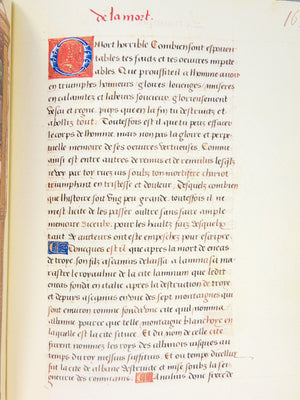 de la mort.
O mort horrible Combien sont espoven
tables tes faitz et tes oeuvres impite
ables. Que prouffite il a lhomme avoir
en triumphes honneurs gloires louenges misteres
en calamitez et labours soucieux glorieusement
vescu et regne. puis que en la fin tu destruitz et
abolitz tout. Toutesfois est il que tu peuz effacer
le corps de lhomme mais non pas la gloire et perpe
tuelle memoire de ses oeuvres vertueuses. Comme
ainsi est entre autres de remus et de romulus lesqlz
par toy rues ius soubz ton mortifere chariot
triumphant en tristesse et douleur. Desquelz combien
que lhistoire soit ung peu grande. toutesfois il ne
mest licite de les passer oultre sans faire ample
memoire
tant de aucteurs ont este empeschez pour escripre.
est il que apres la mort de eneas
de troye son filz ascanius delaissa a lauinia sa ma
rastre le royaulme de la cite lauinium que ledit
eneas fonda en italie apres la destruction de troye
et depuis ascanius en une des sept montaignes qui
sont environ romme fonda une cite quil nomma
albume pource que celle montaigne blanchoye en
laquelle est la cite situee. Et du nom de celle cite
furent nommez les roys des albanois iusques au
temps du roy messius suffetius. Et ou temps dicelluy
fut la cite de albane destruicte et mise soubz la sei
gneurie des rommains. donc frere de